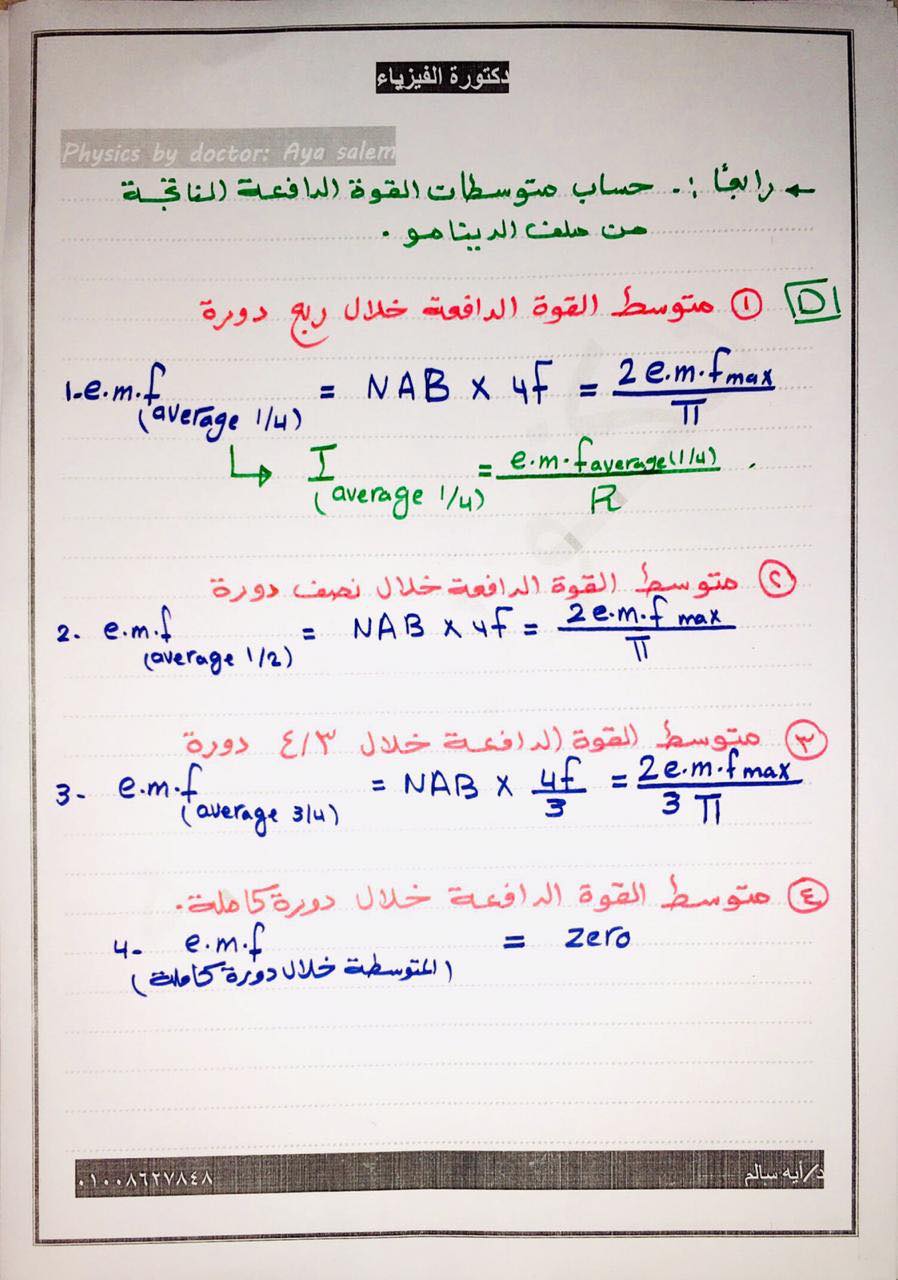 دكتورة الفيزياء
Physics by doctor: Aya salem
← رابعًا :. حساب متوسطات القوة الدافعة الناتجة
من ملف الدينامو .
D ① متوسط القوة الدافعة خلال ربع دورة
1- e.m.f (average 1/4) = NAB × 4f = 2 e.m.f max / π
↳ I (average 1/4) = e.m.f average (1/4) / R .
② متوسط القوة الدافعة خلال نصف دورة
2- e.m.f (average 1/2) = NAB × 4f = 2 e.m.f max / π
③ متوسط القوة الدافعة خلال ٤/٣ دورة
3- e.m.f (average 3/4) = NAB × 4f / 3 = 2 e.m.f max / 3 π
④ متوسط القوة الدافعة خلال دورة كاملة.
4- e.m.f (المتوسطة خلال دورة كاملة) = zero
د/أيه سالم
٠١٠٠٨٦٢٧٨٤٨